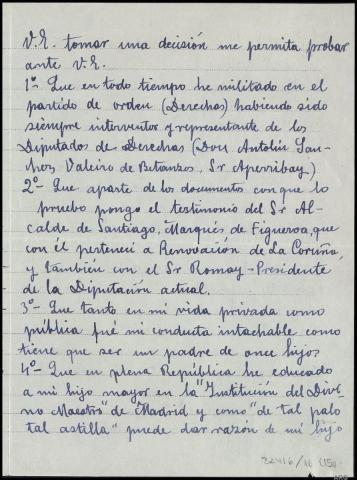 V.E. tomar una decisión me permita probar
ante V.E.
1º- Que en todo tiempo he militado en el
partido de orden (Derechas) habiendo sido
siempre interventor y representante de los
Diputados de Derechas (Don Antolín San-
chez, Valeiro de Betanzos, Sr Aperribay)
2º- Que aparte de los documentos con que lo
pruebo pongo el testimonio del Sr Al-
calde de Santiago, Marqués de Figueroa, que
con él pertenecí a Renovación de La Coruña,
y también con el Sr Romay-Presidente
de la Diputación actual.
3º- Que tanto en mi vida privada como
pública fué mi conducta intachable como
tiene que ser un padre de once hijos
4º- Que en plena República he educado
a mi hijo mayor en la "Institución del Divi-
no Maestro" de Madrid y como "de tal palo
tal astilla" puede dar razón de mi hijo
32416/11 (15)